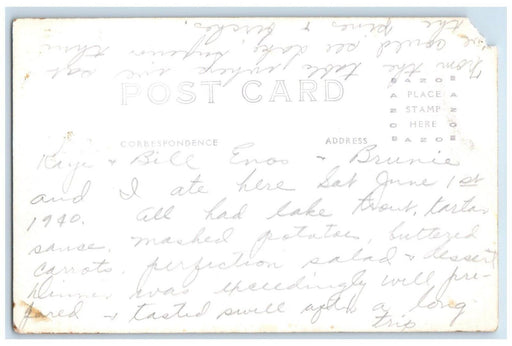 POST CARD
CORRESPONDENCE
ADDRESS
PLACE
STAMP
HERE
Kaye + Bill Enos + Brunie
and I ate here Sat June 1st
1940. All had lake trout, tartar
sause, mashed potatoes, buttered
carrots, perfection salad + dessert
Dinner was exceedingly well pre-
pared + tasted swell after a long
trip
From the table where we sat
we could see lake Superior thru
the pines + birches.